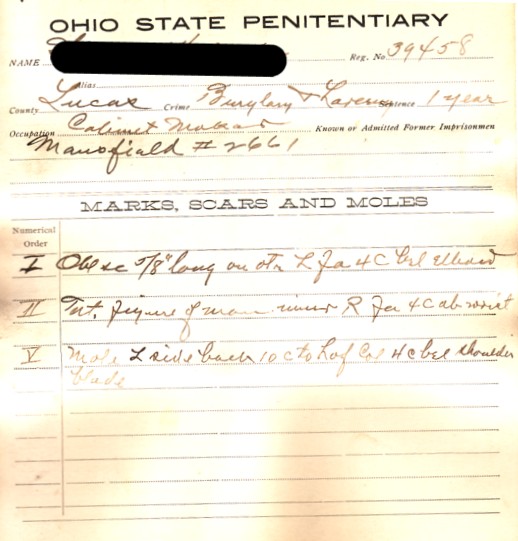 OHIO STATE PENITENTIARY
NAME Reg. No. 39458
Alias
County Lucas Crime Burglary & Larceny Sentence 1 year
Occupation Cabinet Maker Known or Admitted Former Imprisonmen
Mansfield # 2661
MARKS, SCARS AND MOLES
Numerical
Order
I Obl sc 5/8" long on otr L fa 4 C bel elbow
II Tat. figure of man inner R fa 4 C ab wrist
V Mole L side back 10 c to L of Col 4 c bel shoulder
blade